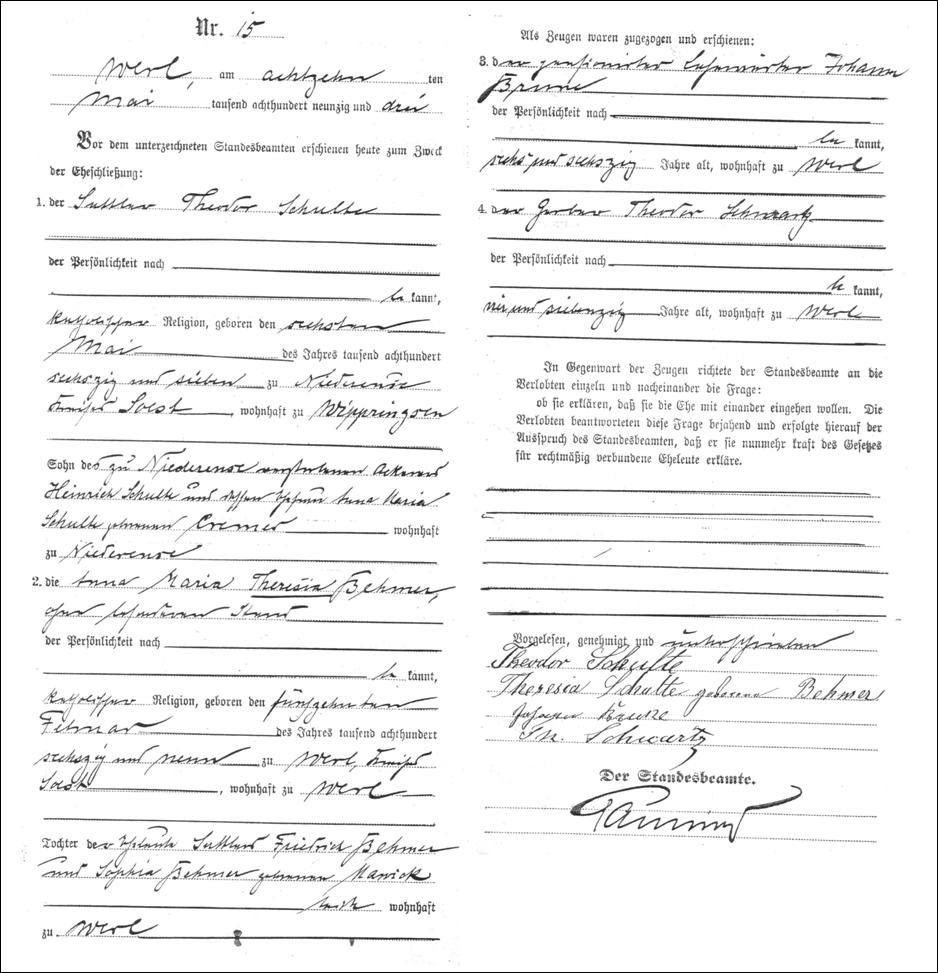 Nr. 15
Werl, am achtzehn ten
Mai tausend achthundert neunzig und drei
Vor dem unterzeichneten Standesbeamten erschienen heute zum Zweck
der Eheschließung:
1. der Sattler Theodor Schulte
der Persönlichkeit nach
be kannt,
katholischer Religion, geboren den sechsten
Mai des Jahres tausend achthundert
sechszig und sieben zu Niederense
Kreises Soest, wohnhaft zu Wippringsen
Sohn des zu Niederense verstorbenen Ackerers
Heinrich Schulte und dessen Ehefrau Anna Maria
Schulte geborenen Cremer wohnhaft
zu Niederense
2. die Anna Maria Theresia Behmer,
ohne besonderen Stand
der Persönlichkeit nach
be kannt,
katholischer Religion, geboren den fünfzehnten
Februar des Jahres tausend achthundert
sechszig und neun zu Werl, Kreises
Soest, wohnhaft zu Werl
Tochter der Eheleute Sattlers Friedrich Behmer
und Sophia Behmer geborenen Mawick
beide wohnhaft
zu Werl
Als Zeugen waren zugezogen und erschienen:
3. der pensionirter Johann
der Persönlichkeit nach
be kannt,
sechs und sechszig Jahre alt, wohnhaft zu Werl
4. der Gerber Theodor Schwartz
der Persönlichkeit nach
be kannt,
vier und siebenzig Jahre alt, wohnhaft zu Werl
In Gegenwart der Zeugen richtete der Standesbeamte an die
Verlobten einzeln und nacheinander die Frage:
ob sie erklären, daß sie die Ehe mit einander eingehen wollen. Die
Verlobten beantworteten diese Frage bejahend und erfolgte hierauf der
Ausspruch des Standesbeamten, daß er sie nunmehr kraft des Gesetzes
für rechtmäßig verbundene Eheleute erkläre.
Vorgelesen, genehmigt und unterschrieben
Theodor Schulte
Theresia Schulte geborene Behmer
Johann
Th. Schwartz
Der Standesbeamte.